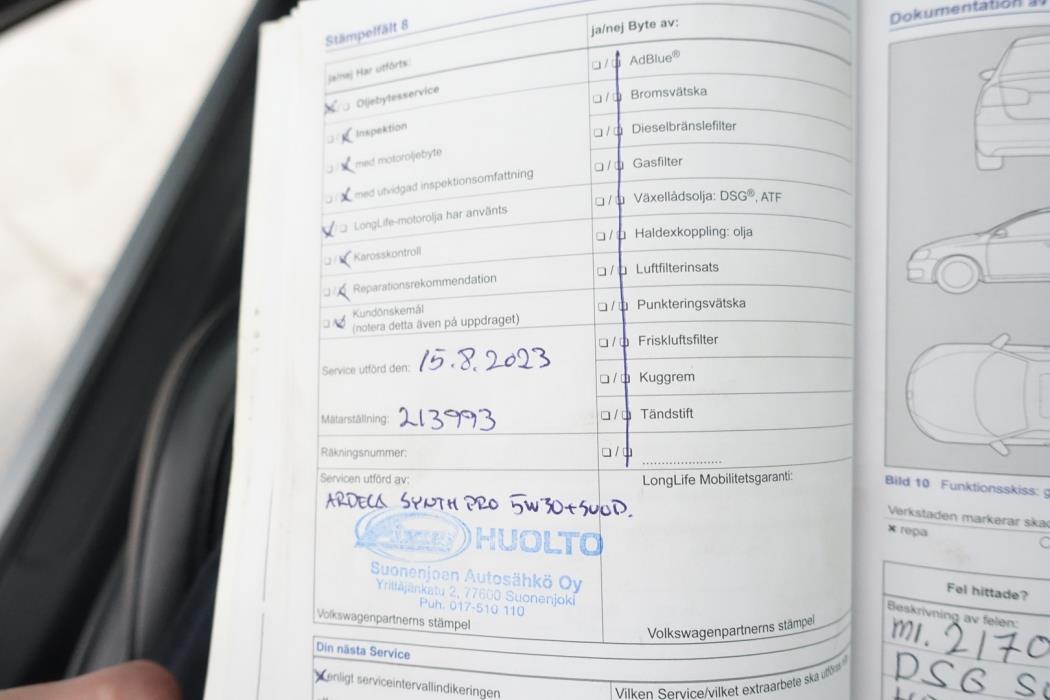 Stämpelfält 8
ja/nej Har utförts:
Oljebytesservice
Inspektion
med motoroljebyte
med utvidgad inspektionsomfattning
LongLife-motorolja har använts
Karosskontroll
Reparationsrekommendation
Kundönskemål
(notera detta även på uppdraget)
Service utförd den: 15.8.2023
Mätarställning: 213993
Räkningsnummer:
Servicen utförd av:
ARDECA SYNTH PRO 5W30+SUOD.
HUOLTO
Suonenjoen Autosähkö Oy
Yrittäjänkatu 2, 77600 Suonenjoki
Puh. 017-510 110
Volkswagenpartnerns stämpel
ja/nej Byte av:
AdBlue®
Bromsvätska
Dieselbränslefilter
Gasfilter
Växellådsolja: DSG®, ATF
Haldexkoppling: olja
Luftfilterinsats
Punkteringsvätska
Friskluftsfilter
Kuggrem
Tändstift
LongLife Mobilitetsgaranti:
Volkswagenpartnerns stämpel
Din nästa Service
enligt serviceintervallindikeringen
Vilken Service/vilket extraarbete ska utföras vid
Dokumentation av
Bild 10 Funktionsskiss: g
Verkstaden markerar skad
× repa
Fel hittade?
Beskrivning av felen:
ml. 2170
DSG